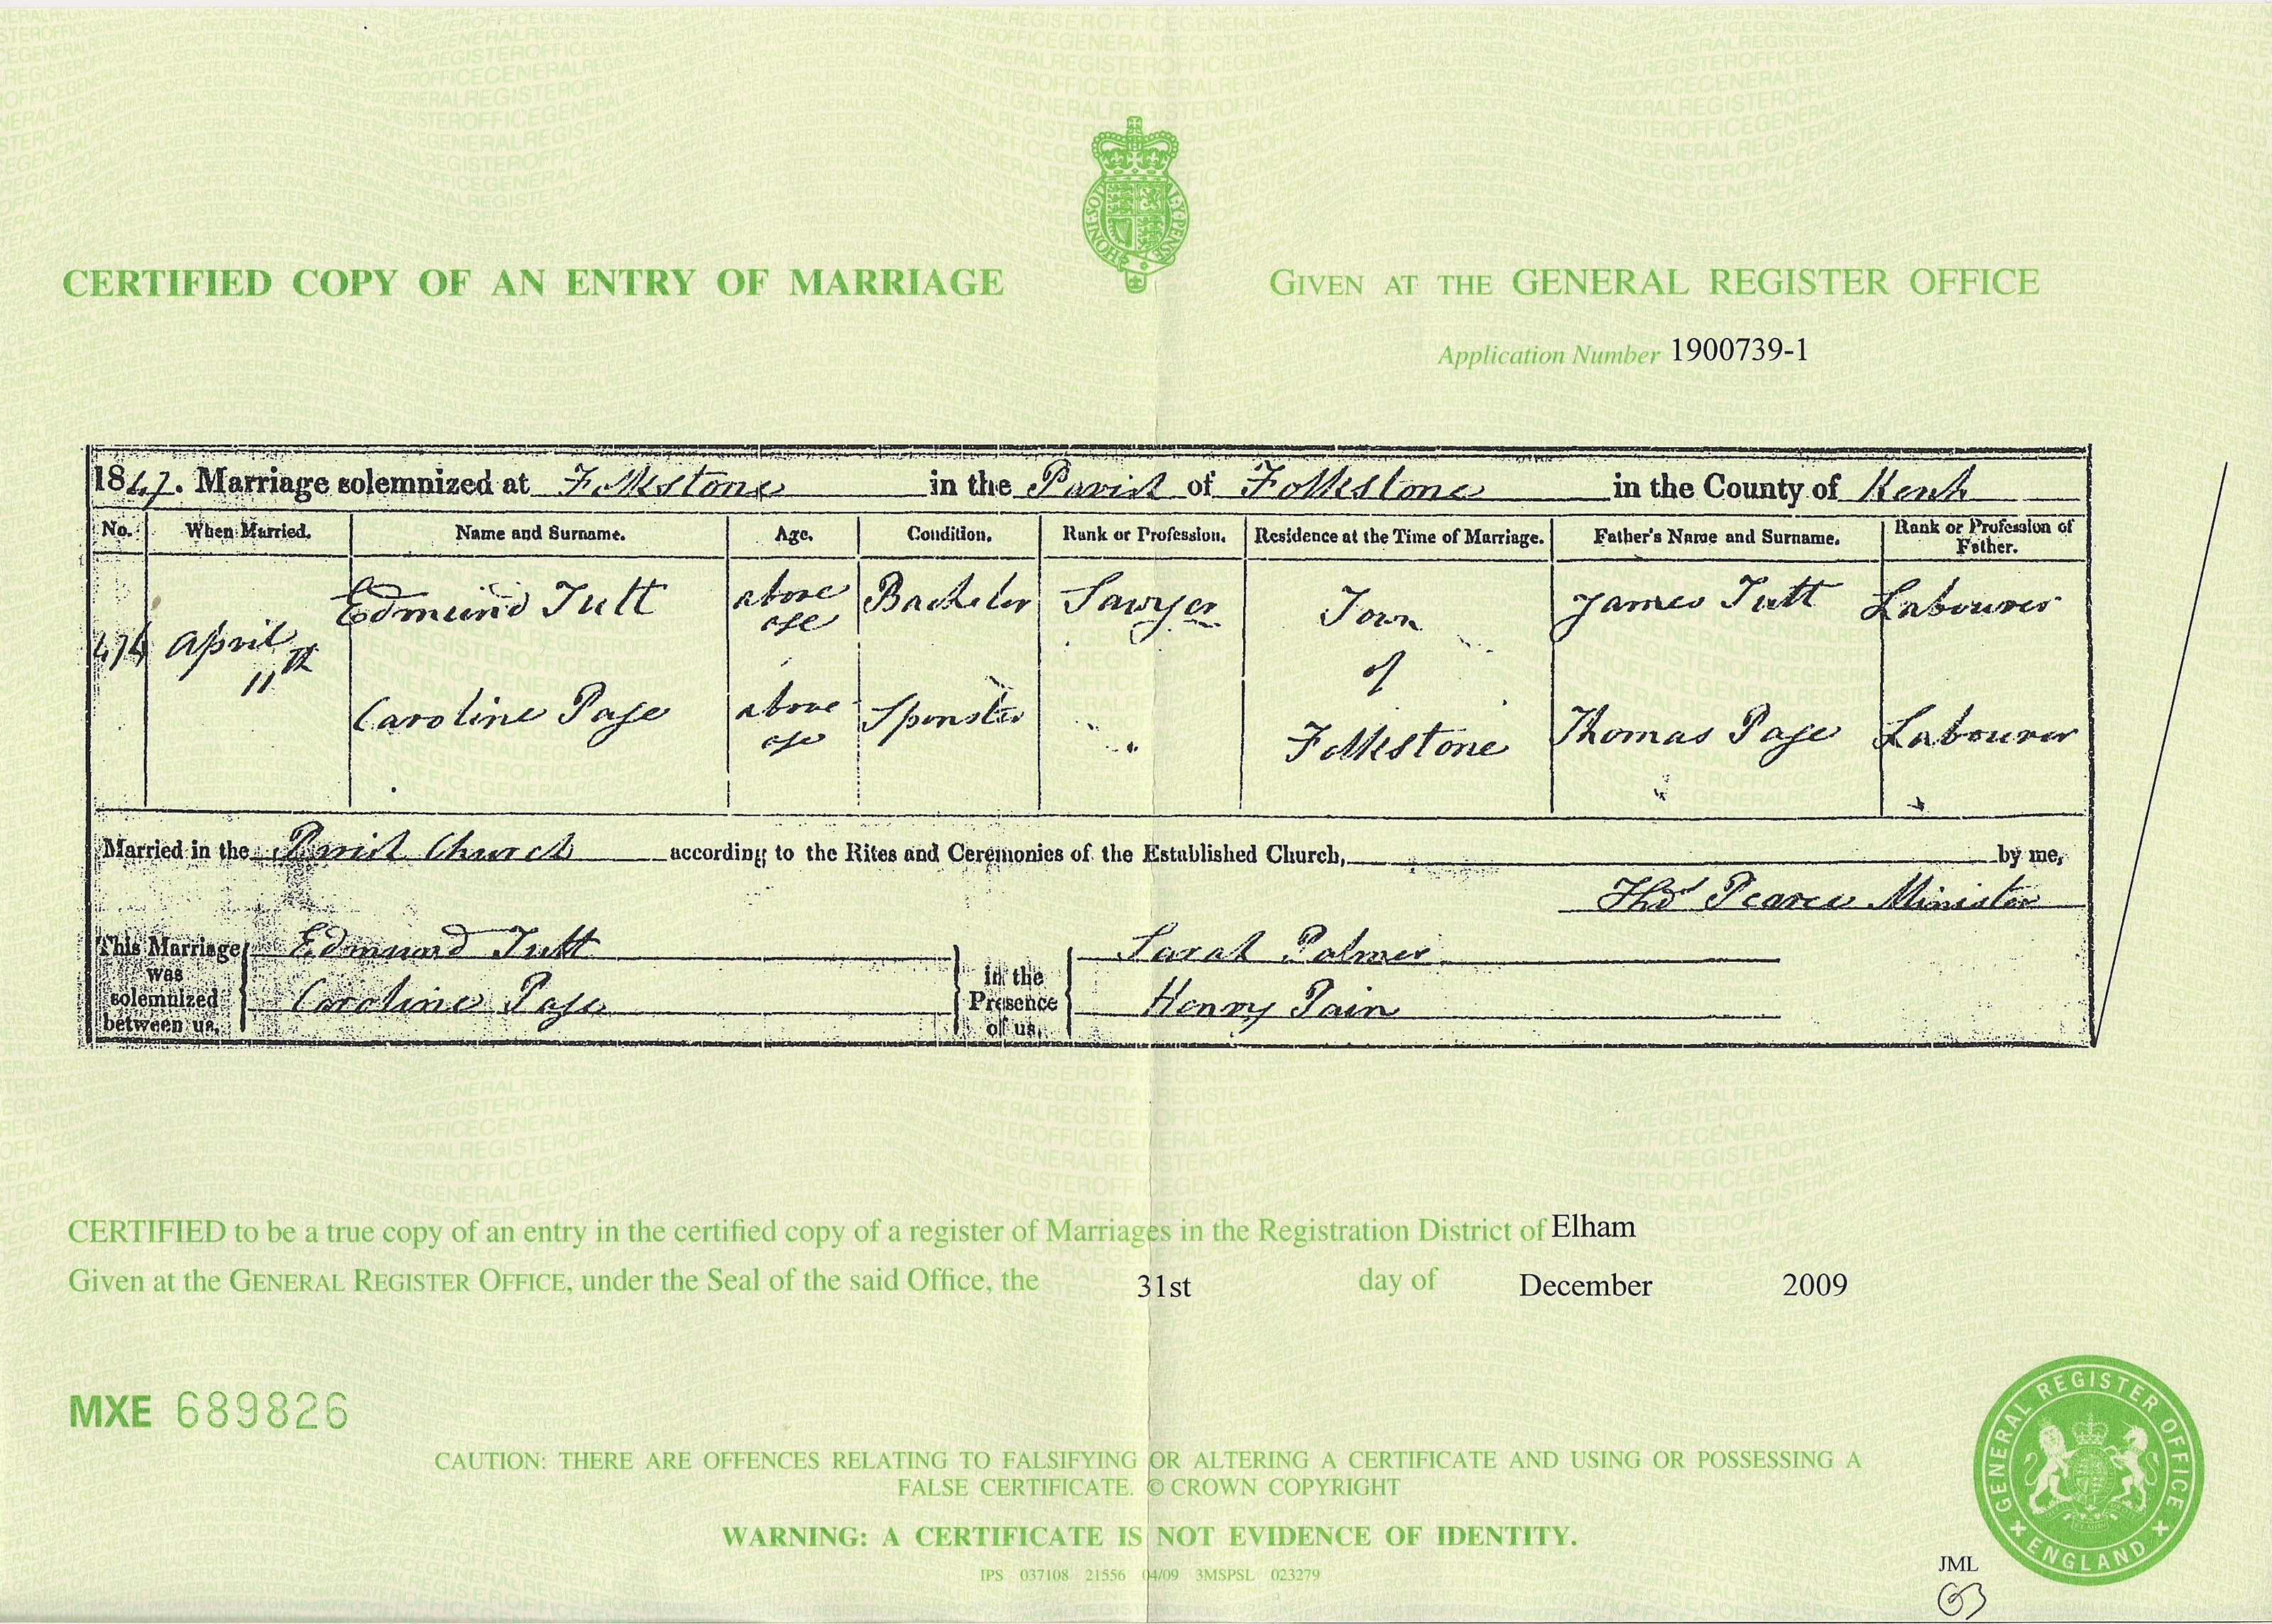 CERTIFIED COPY OF AN ENTRY OF MARRIAGE
GIVEN AT THE GENERAL REGISTER OFFICE
Application Number 1900739-1
1847. Marriage solemnized at Folkstone in the Parish of Folkstone in the County of Kent
No. When Married. Name and Surname. Age. Condition. Rank or Profession. Residence at the Time of Marriage. Father's Name and Surname. Rank or Profession of Father.
474 April 11th Edmund Tutt above age Bachelor Sawyer Town of Folkstone James Tutt Labourer
Caroline Page above age Spinster Thomas Page Labourer
Married in the Parish Church according to the Rites and Ceremonies of the Established Church, by me,
Thos Pearce Minister
This Marriage was solemnized between us, Edmund Tutt Caroline Page in the Presence of us, Sarah Palmer Henry Pain
CERTIFIED to be a true copy of an entry in the certified copy of a register of Marriages in the Registration District of Elham
Given at the GENERAL REGISTER OFFICE, under the Seal of the said Office, the 31st day of December 2009
MXE 689826
CAUTION: THERE ARE OFFENCES RELATING TO FALSIFYING OR ALTERING A CERTIFICATE AND USING OR POSSESSING A
FALSE CERTIFICATE. © CROWN COPYRIGHT
WARNING: A CERTIFICATE IS NOT EVIDENCE OF IDENTITY.
IPS 037108 21556 04/09 3MSPSL 023279
GENERAL REGISTER OFFICE
ENGLAND
JML